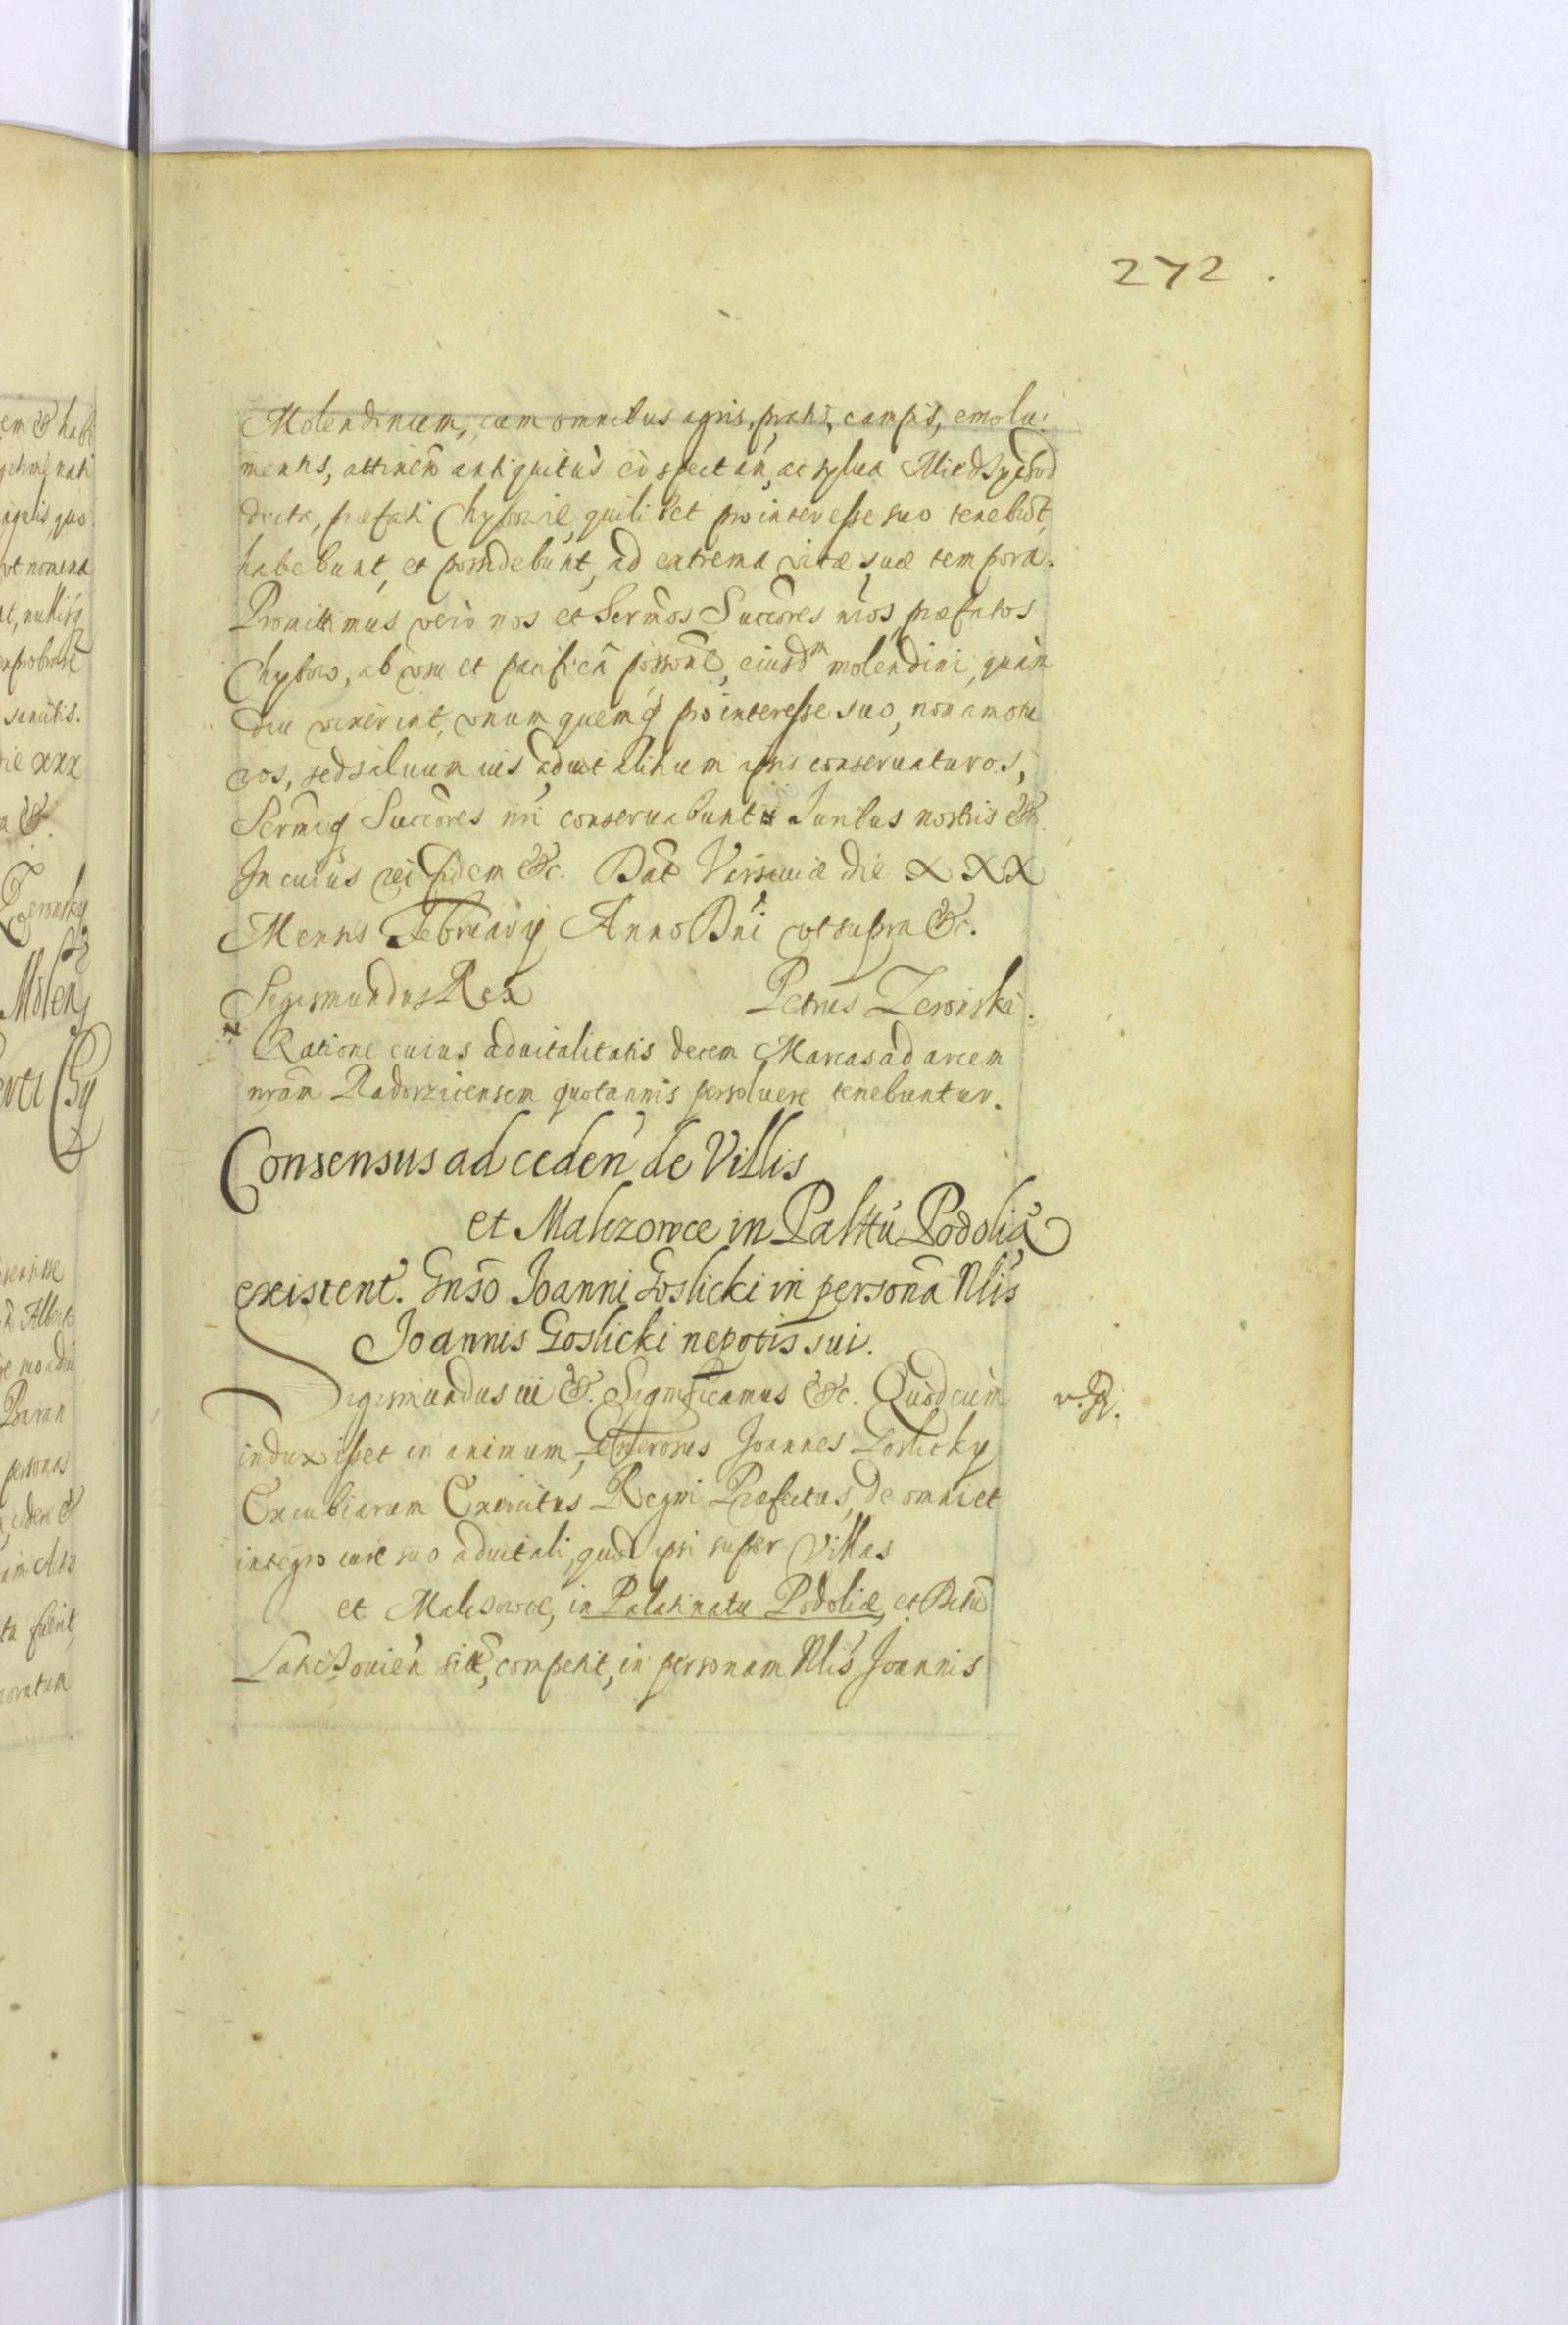 272.
Molendinum, cum omnibus agris, pratis, campis, emolu:
mentis, attineñ antiquitùs eò spectañ, ac sylua
dicta, præfati Chybowie, quilibet pro interesse suo tenebũt,
habebunt, et possidebunt, ad extrema vitæ suæ tempora.
Promittimus verò nos et Sermos Succores nros, præfatos
Chybow, ab usu et pacifica possone, eiusdm molendini, quàm
diu vixerint, vnumquemq pro interesse suo, non amotu
ros, sed saluum ius aduitalitium ipsis conseruaturos,
Sermiq Succores nri conseruabunt Iuribus nostris &
In cuius rei fidem &c. Dat Varsauiæ die XXX
Mensis February Anno Dni vt supra &c.
Sigismundus Rex Petrus Zeronski.
Ratione cuius aduitalitatis decem Marcas ad arcem
nram Radoszicensem quotannis persoluere tenebuntur.
Consensus ad ceden de Villis
et Maliczowce in Palttu Podoliæ
existent. Gnso Joanni Goslicki in persona Nlis
Joannis Goslicki nepotis sui.
Sigismundus iii &. Significamus &c. Quòd cùm
v. R.
induxisset in animum, Generosus Joannes Goslicky
Excubiarum Exercitus Regni Præfectus, de omni et
integro iure suo aduitali, quod ipsi super Villas
et Maliczowce, in Palatinatu Podoliæ, et Distu
sitæ, competit, in personam Nlis Joannis